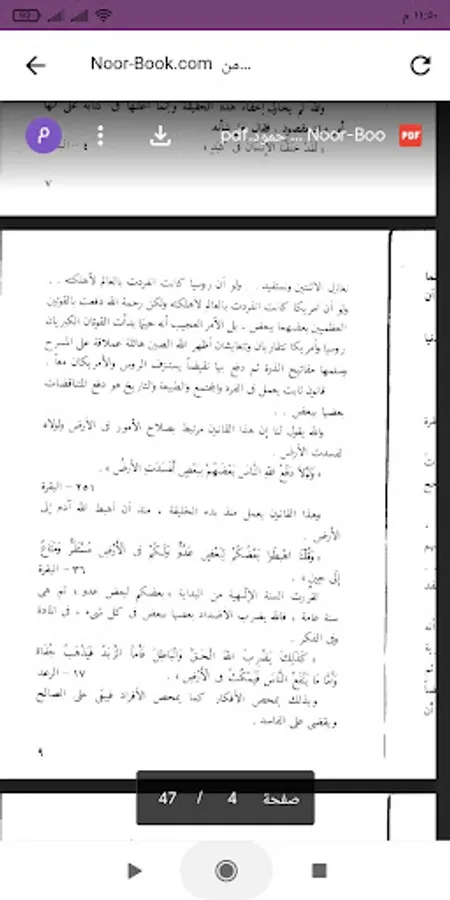 ١١:٥٠ م
92
Noor-Book.com من...
ولقد خلقنا الإنسان فى كبد
Noor-Boo ... حمود.pdf
PDF
م
٧
نغازل الاثنتين ونستفيد .. ولو أن روسيا كانت انفردت بالعالم لأهلكته ..
ولو أن أمريكا كانت انفردت بالعالم لأهلكته ولكن رحمة الله دفعت بالقوتين
العظميين بعضهما ببعض . بل الأمر العجيب أنه حينما بدأت القوتان الكبريان
روسيا وأمريكا تتقاربان وتتعايشان أظهر الله الصين هائلة عملاقة على المسرح
وسلمها مفاتيح الذرة ثم دفع بها نقيضاً يستنزف الروس والأمريكان معاً .
قانون ثابت يعمل فى الفرد والمجتمع والطبيعة والتاريخ هو دفع المتناقضات
بعضها ببعض ..
والله يقول لنا إن هذا القانون مرتبط بصلاح الأمور فى الأرض ولولاه
لفسدت الأرض .
« وَلَوْلَا دَفْعُ اللهِ النَّاسَ بَعْضَهُمْ بِبَعْضٍ لَفَسَدَتِ الْأَرْضُ » .
٢٥١ - البقرة
وهذا القانون يعمل منذ بدء الخليقة ، منذ أن أهبط الله آدم إلى
الأرض .
« وَقُلْنَا اهْبِطُوا بَعْضُكُمْ لِبَعْضٍ عَدُوٌّ وَلَكُمْ فِى الْأَرْضِ مُسْتَقَرٌّ وَمَتَاعٌ
إِلَى حِينٍ » . ٣٦ - البقرة
تقررت السنة الإلهية من البداية « بعضكم لبعض عدو » ثم هى
سنة عامة ، فالله يضرب الأضداد بعضها ببعض فى كل شىء ، فى المادة
وفى الفكر .
« كَذَلِكَ يَضْرِبُ اللهُ الْحَقَّ وَالْبَاطِلَ فَأَمَّا الزَّبَدُ فَيَذْهَبُ جُفَاءً
وَأَمَّا مَا يَنْفَعُ النَّاسَ فَيَمْكُثُ فِى الْأَرْضِ » . ١٧ - الرعد
وبذلك يمحص الأفكار كما يمحص الأفراد فيبقى على الصالح
ويقضى على الفاسد .
٩
صفحة 4 / 47